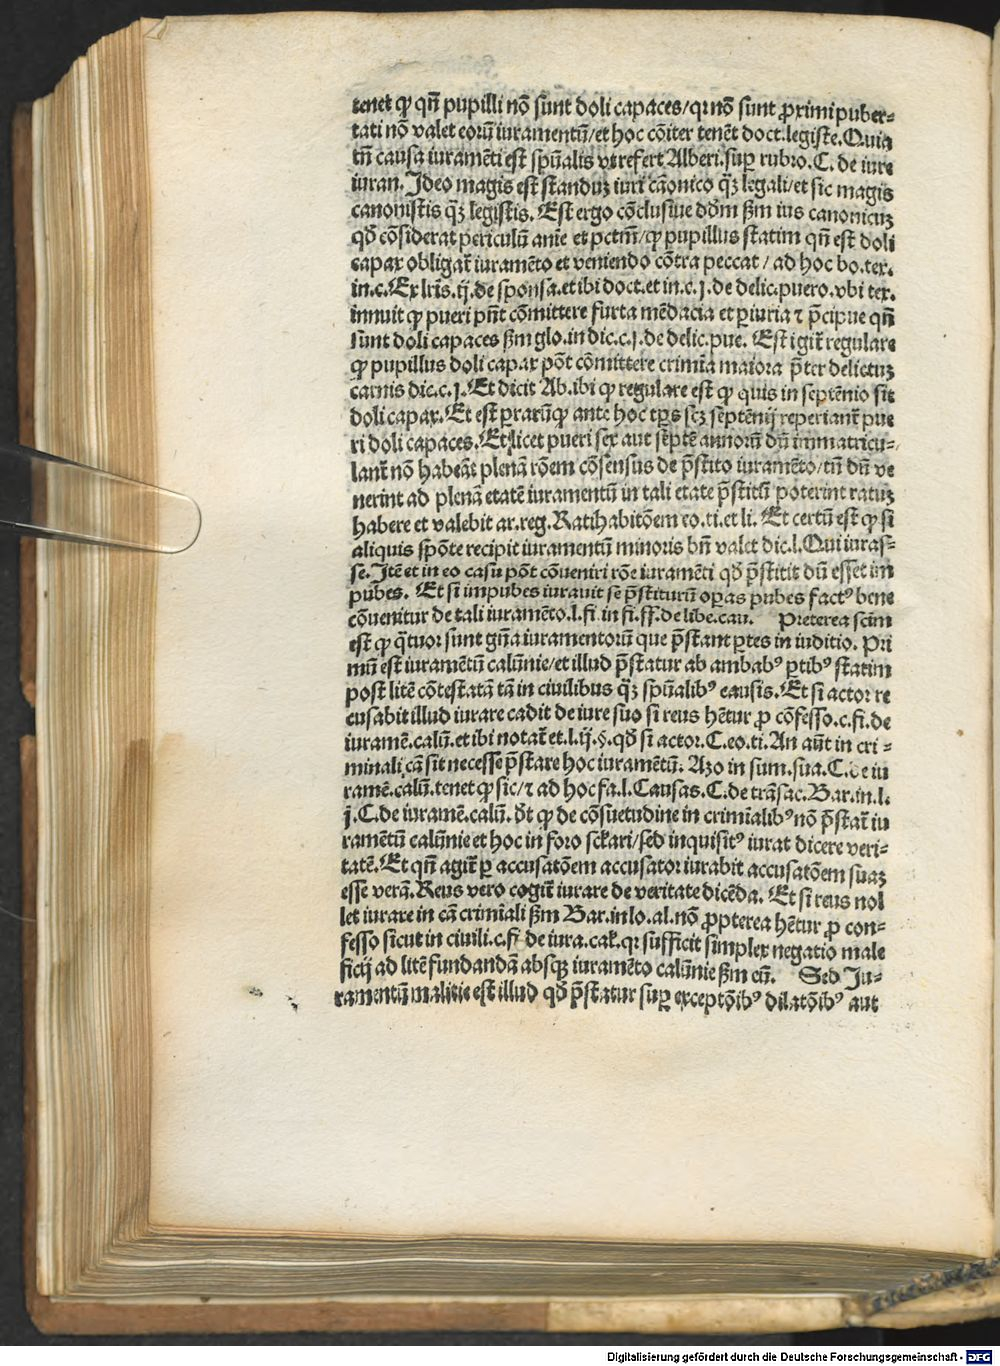 tenet ꝙ qñ pupilli nõ sunt doli capaces/qꝛ nõ sunt ꝓximi puber⸗
tati nõ valet eorũ iuramentũ/et hoc cõiter tenẽt doct.legiste.Quia
tñ causa iuramẽti est spũalis vt refert Alberi.suꝑ rubro.C.de iure
iuran. Ideo magis est standuꝫ iuri canonico qͣ̃ꝫ legali/et sic magis
canonistis qͣ̃ꝫ legistis. Est ergo cõclusiue dd̃m ẜm ius canonicuꝫ
qd̃ cõsiderat periculũ anie et pctm̃/ꝙ pupillus statim qñ est doli
capax obligat̃ iuramẽto et veniendo cõtra peccat / ad hoc bo.tex.
in.c.Ex lr̃is.ij.de sponsa.et ibi doct.et in.c.j.de delic.puero.vbi tex.
innuit ꝙ pueri pñt cõmittere furta mẽdacia et ꝑiuria ⁊ p̃cipue qñ
sunt doli capaces ẜm glo.in dic.c.j.de delic.pue. Est igit̃ regulare
ꝙ pupillus doli capax põt cõmittere crimĩa maiora p̃ter delictuꝫ
carnis dic.c.j. Et dicit Ab.ibi ꝙ regulare est ꝙ quis in septẽnio sit
doli capax. Et est ꝑrarũꝙ ante hoc tꝑs scꝫ septẽnij reperiant̃ pue
ri doli capaces. Et licet pueri sex aut septẽ annorũ dũ immatricu⸗
lant̃ nõ habeãt plenã rõem cõsensus de p̃stito iuramẽto/tñ dũ ve
nerint ad plenã etatẽ iuramentũ in tali etate p̃stitũ poterint ratuꝫ
habere et valebit ar.reg.Ratihabitõem eo.ti.et li. Et certũ est ꝙ si
aliquis spõte recipit iuramentũ minoris bñ valet dic.l.Qui iuras⸗
se. Itẽ et in eo casu põt cõueniri rõe iuramẽti qd̃ p̃stitit dũ esset im
pubes. Et si impubes iurauit se p̃stiturũ oꝑas pubes factꝰ bene
cõuenitur de tali iuramẽto.l.fi.in fi.ff.de libe.cau. Preterea scim
est ꝙ qͣtuor sunt gñа iuramentorũ que p̃stant ꝑtes in iuditio. Pri
mũ est iuramẽtũ calũnie/et illud p̃statur ab ambabꝰ ꝑtibꝰ statim
post litẽ cõtestatã tã in ciuilibus qͣ̃ꝫ spũalibꝰ causis. Et si actor re
cusabit illud iurare cadit de iure suo si reus hẽtur ꝓ cõfesso.c.fi.de
iuramẽ.calũ.et ibi notat̃ et.l.ij.§.qd̃ si actor.C.eo.ti.An aũt in cri⸗
minali cã sit necesse p̃stare hoc iuramẽtũ. Azo in sum.sua.C.de iu
ramẽ.calũ.tenet ꝙ sic/⁊ ad hoc fa.l.Causas.C.de trãsac.Bar.in.l.
j.C.de iuramẽ.calũ. dt̃ ꝙ de cõsuetudine in crimĩalibꝰ nõ p̃stat̃ iu
ramẽtũ calũnie et hoc in foro sckari/sed inquisitꝰ iurat dicere veri⸗
tatẽ. Et qñ agit̃ ꝑ accusatõem accusator iurabit accusatõem suaꝫ
esse verã. Reus vero cogit̃ iurare de veritate dicẽda. Et si reus nol
let iurare in cã crimĩali ẜm Bar.in lo.al.nõ ꝓpterea hẽtur ꝓ con⸗
fesso sicut in ciuili.c.fi.de iura.cal.qꝛ sufficit simplex negatio male
ficij ad litẽ fundandã absqꝫ iuramẽto calũnie ẜm eũ. Sed Iu⸗
ramentũ malitie est illud qd̃ p̃statur suꝑ exceptõibꝰ dilatõibꝰ aut
Digitalisierung gefördert durch die Deutsche Forschungsgemeinschaft - DFG